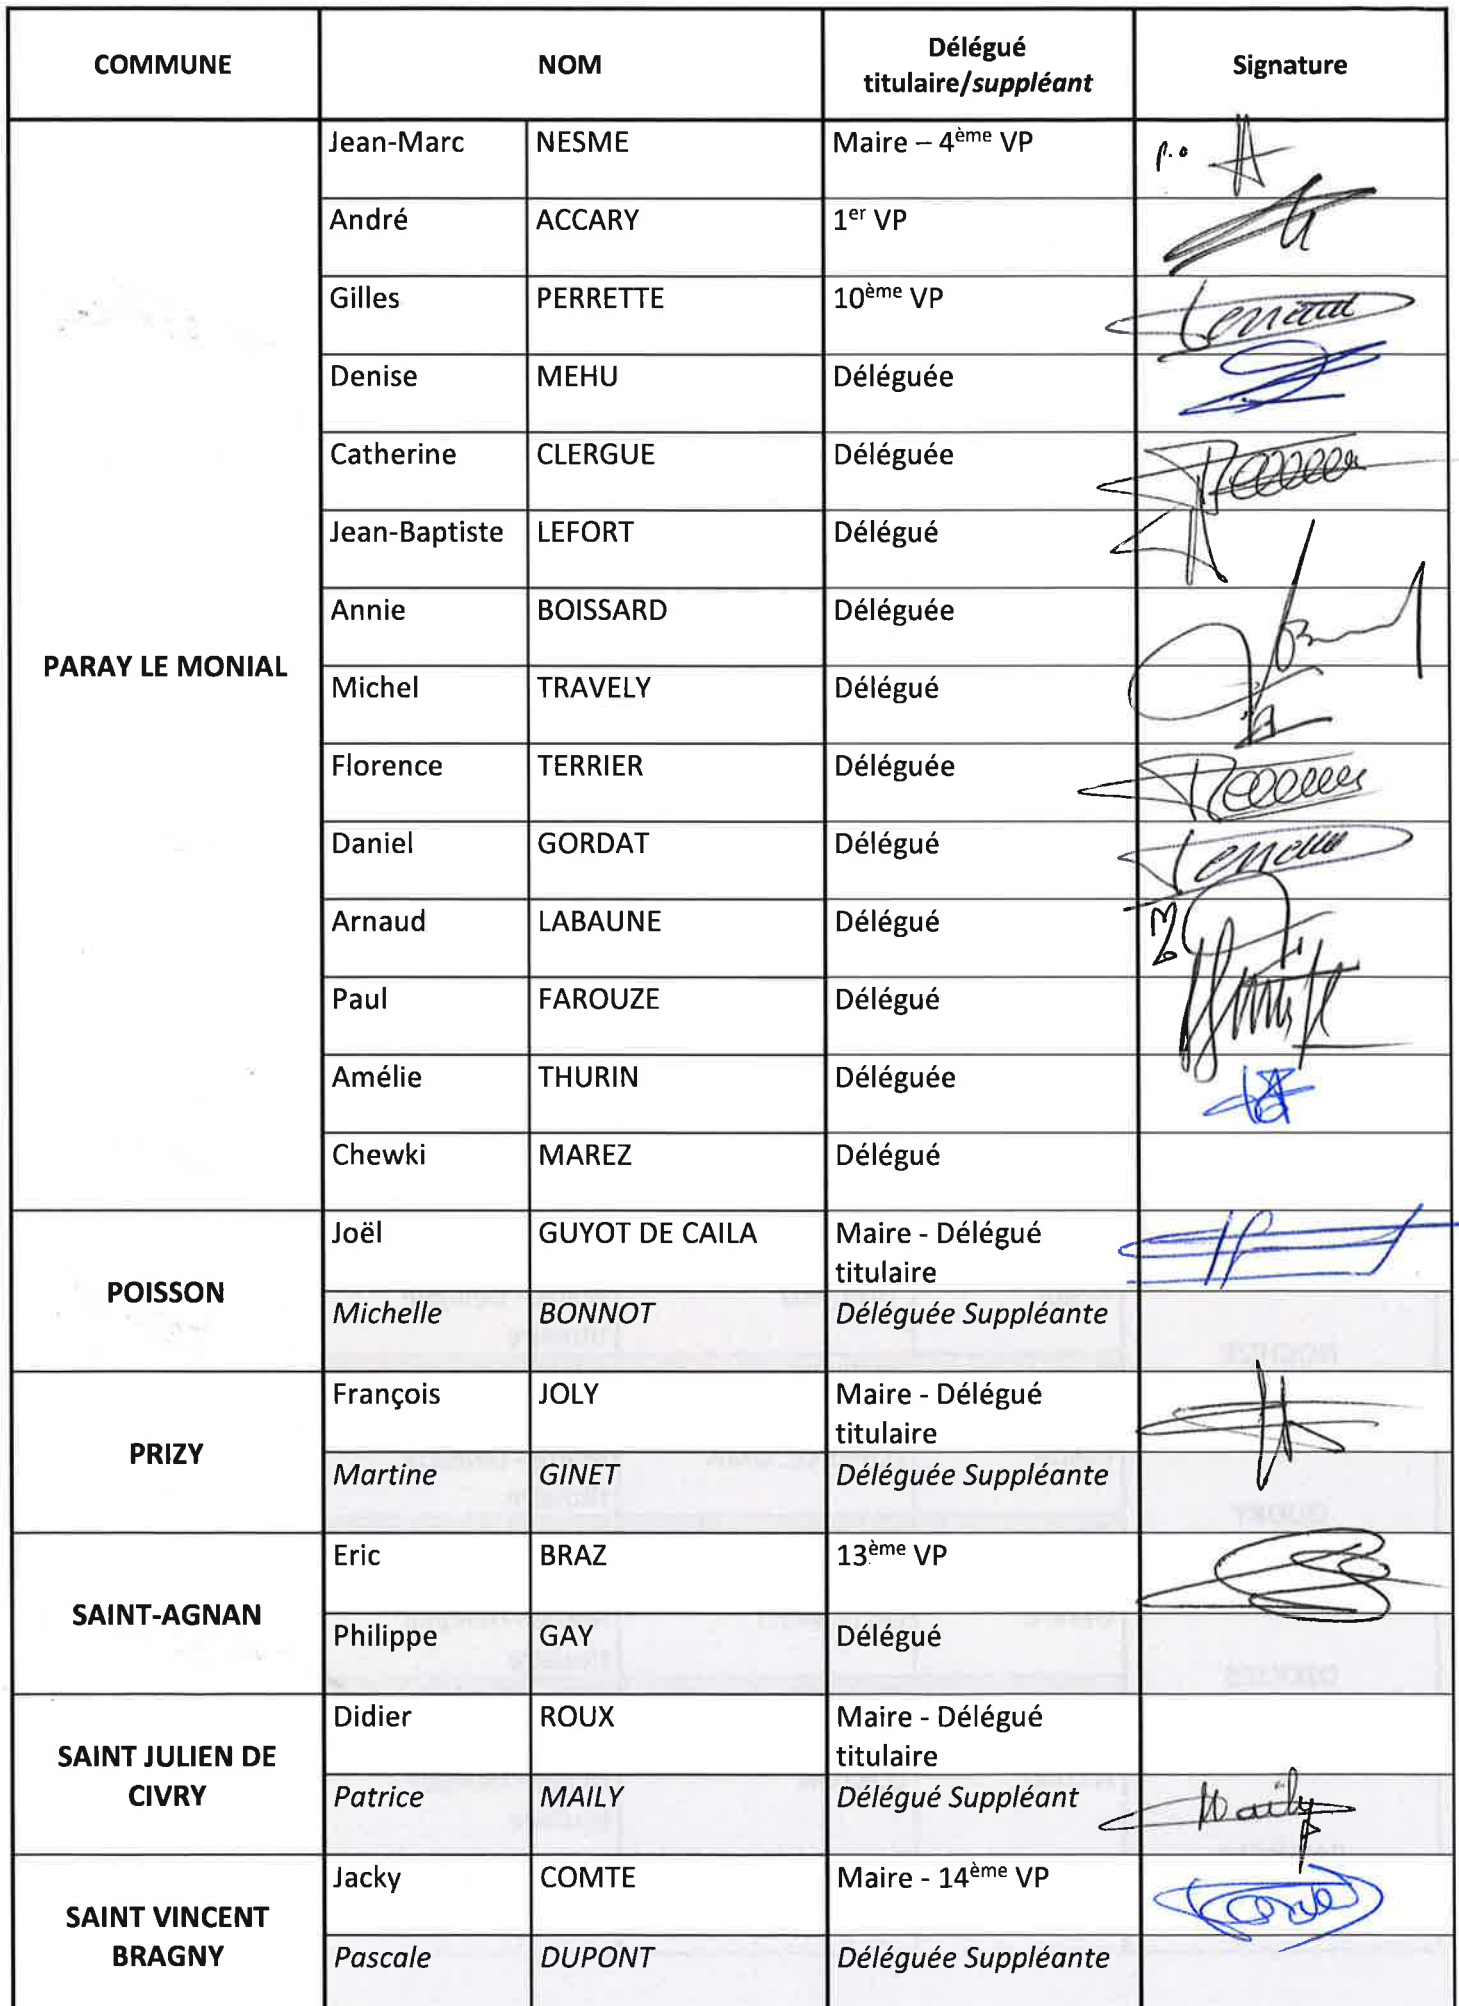 COMMUNE NOM Délégué titulaire/suppléant Signature
PARAY LE MONIAL
Jean-Marc NESME Maire – 4ème VP p.o
André ACCARY 1er VP
Gilles PERRETTE 10ème VP
Denise MEHU Déléguée
Catherine CLERGUE Déléguée
Jean-Baptiste LEFORT Délégué
Annie BOISSARD Déléguée
Michel TRAVELY Délégué
Florence TERRIER Déléguée
Daniel GORDAT Délégué
Arnaud LABAUNE Délégué
Paul FAROUZE Délégué
Amélie THURIN Déléguée
Chewki MAREZ Délégué
POISSON
Joël GUYOT DE CAILA Maire - Délégué
titulaire
Michelle BONNOT Déléguée Suppléante
PRIZY
François JOLY Maire - Délégué
titulaire
Martine GINET Déléguée Suppléante
SAINT-AGNAN
Eric BRAZ 13ème VP
Philippe GAY Délégué
SAINT JULIEN DE
CIVRY
Didier ROUX Maire - Délégué
titulaire
Patrice MAILY Délégué Suppléant Maily
SAINT VINCENT
BRAGNY
Jacky COMTE Maire - 14ème VP
Pascale DUPONT Déléguée Suppléante